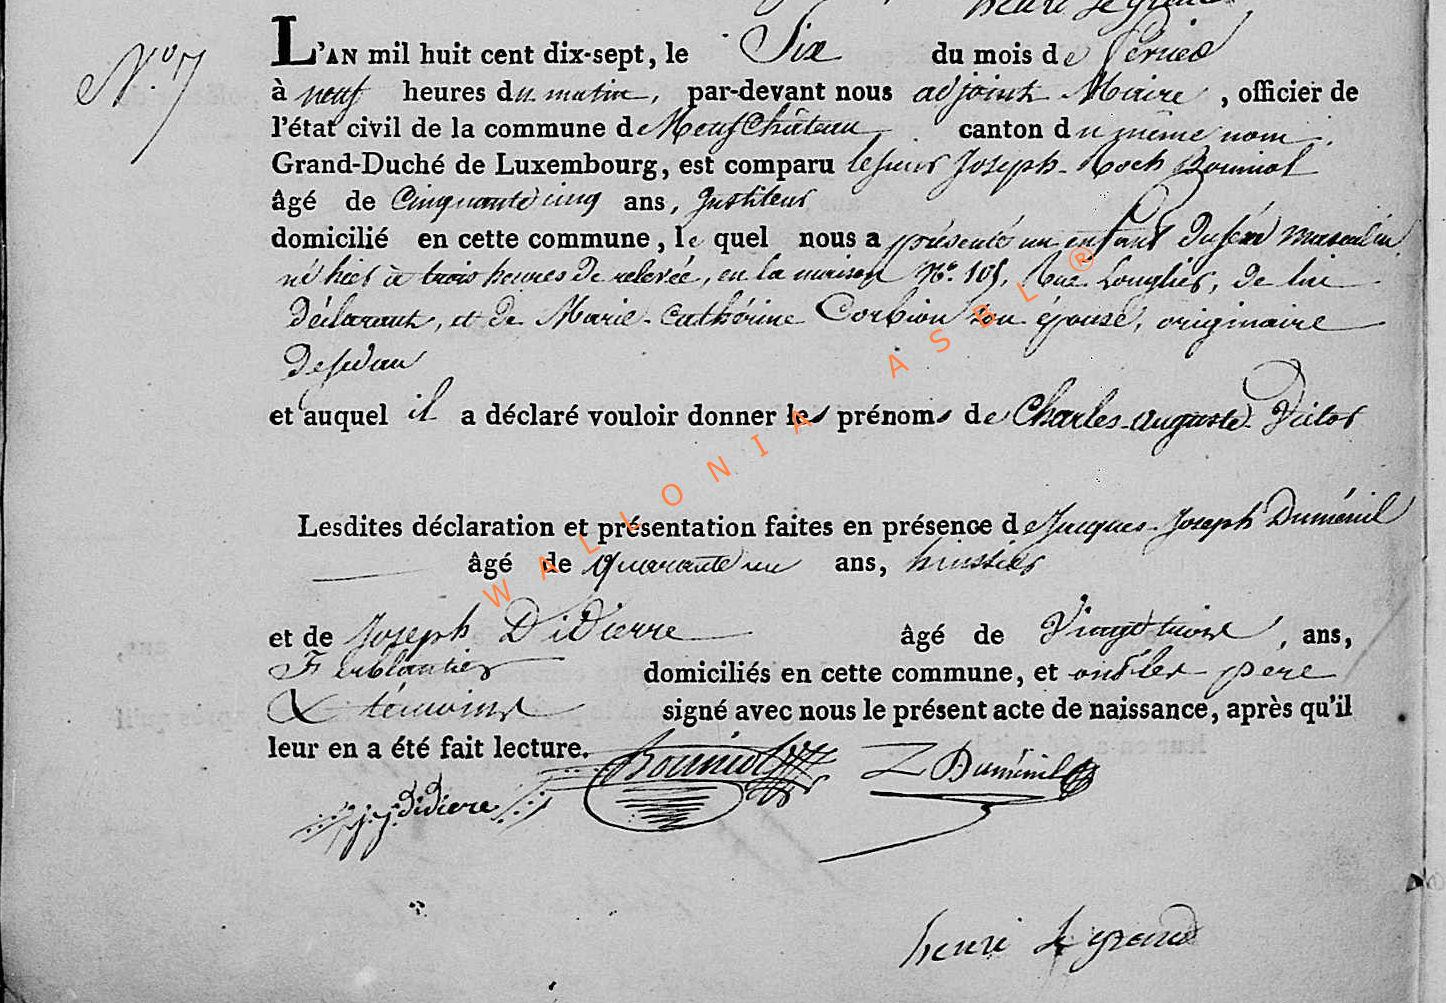 henri Legrand
N.o 7
L'AN mil huit cent dix-sept, le Six du mois de fevrier
à neuf heures du matin, par-devant nous adjoint Maire, officier de
l'état civil de la commune de Neufchâteau canton du même nom.
Grand-Duché de Luxembourg, est comparu le sieur Joseph-Roch Bouniol
âgé de Cinquante cinq ans, Instituteur
domicilié en cette commune, le quel nous a présenté un enfant du sexe masculin,
né hier à trois heures de relevée, en la maison No. 101, Rue Longlier, de lui
déclarant, et de Marie-Cathérine Corbion son épouse, originaire
de sedan
et auquel il a déclaré vouloir donner les prénoms de Charles-Auguste-Victor
Lesdites déclaration et présentation faites en présence de Jacques-Joseph Duménil
âgé de quarante un ans, huissier
et de Joseph Didierre âgé de Vingt trois, ans,
Ferblantier domiciliés en cette commune, et ont les père
& témoins signé avec nous le présent acte de naissance, après qu'il
leur en a été fait lecture. Bouniol Duménil
JJ didiere
henri Legrand
WALLONIA ASBL ®